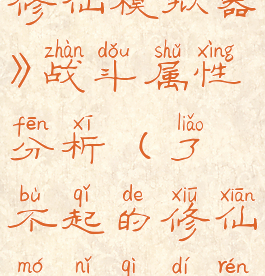 修仙模拟器
zhàn dǒu shǔ xìng
》战斗属性
fēn xī liǎo
分析（了
bù qǐ de xiū xiān
不起的修仙
mó nǐ qì dí rén